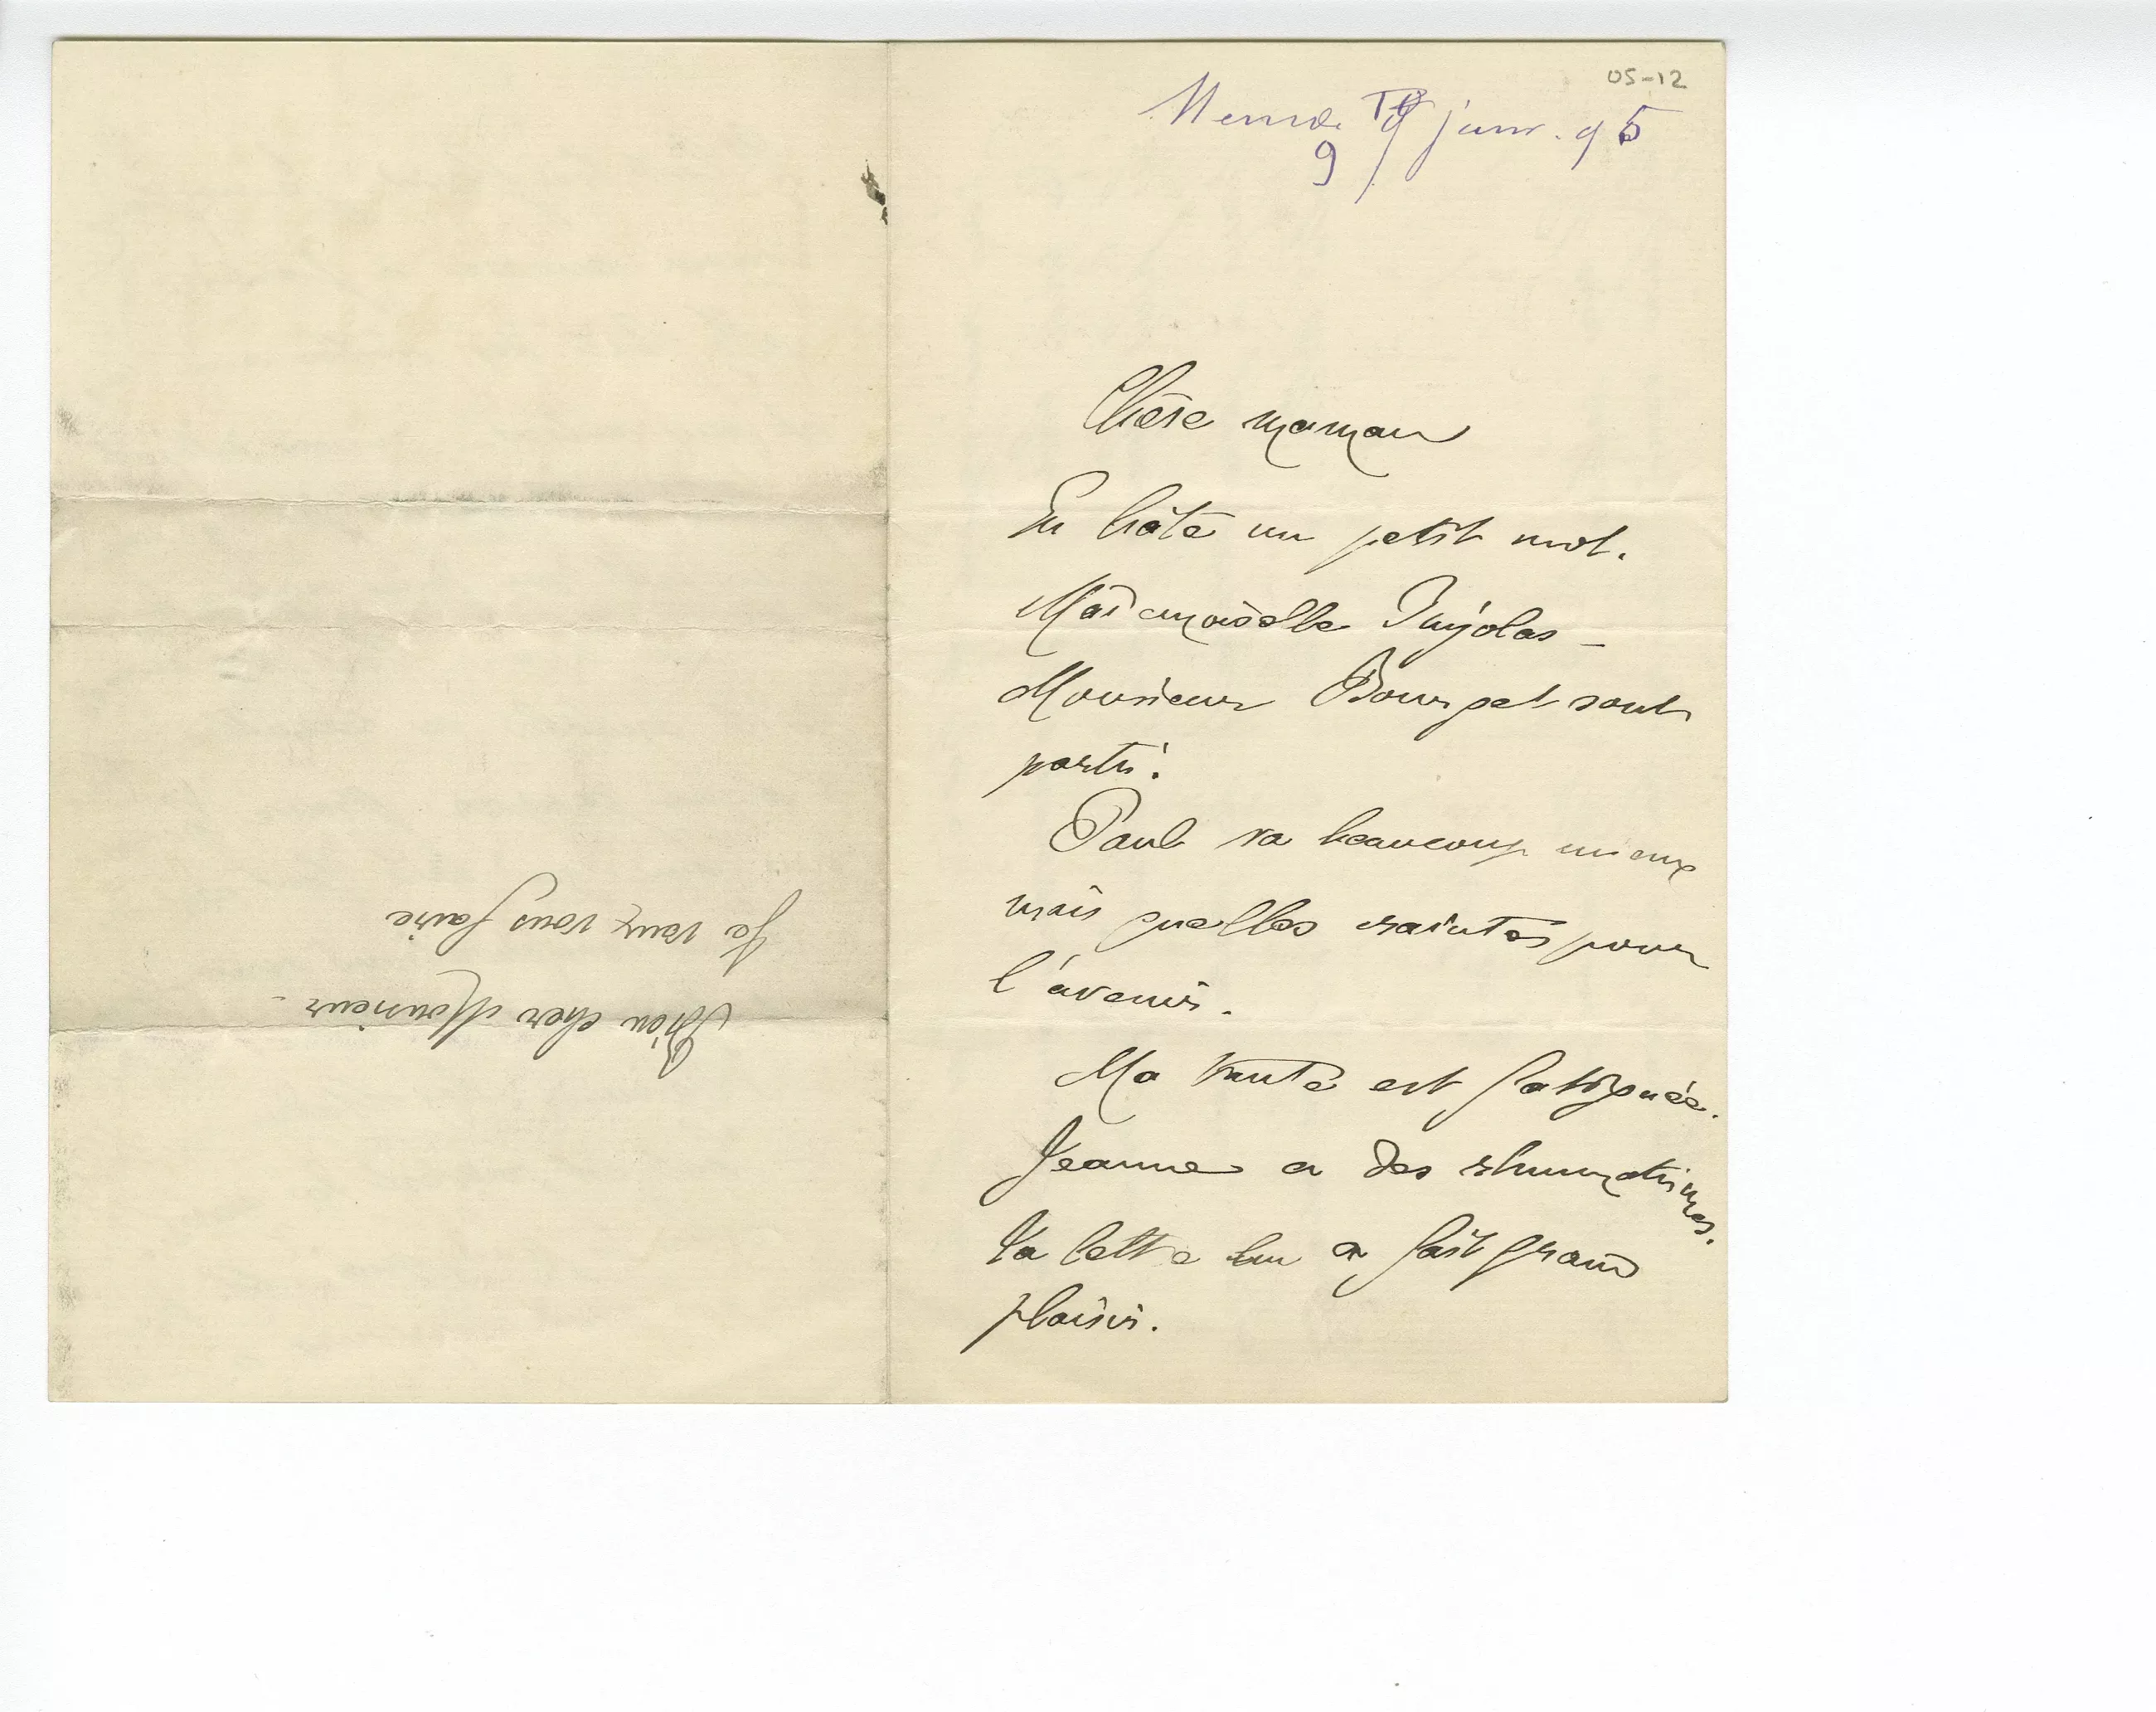 05-12
9 janv. 95
Chère maman
En hâte un petit mot.
Mademoiselle Pujolas -
Monsieur Bourget sont
parti.
Paul va beaucoup mieux
mais quelles craintes pour
l'avenir.
Ma tante est fatiguée.
Jeanne a des rhumatismes.
Ta lettre lui a fait grand
plaisir.
Mon cher Monsieur -
Je veux vous faire